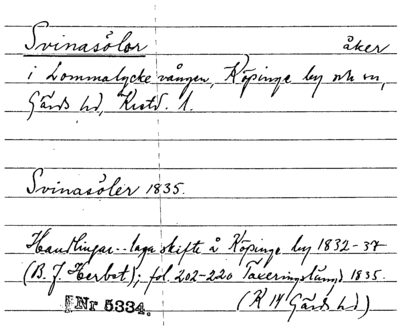 Svinasölor åker
i Lommalycke vången, Köpinge by och sn,
Gärds hd, Krstd. l.
Svinasöler 1835.
Handlingar .. laga skifte å Köpinge by 1832-37
(B. J. Herbst); fol. 202-220 Taxeringslängd 1835.
Nr 5334. (R 14 Gärds hd)